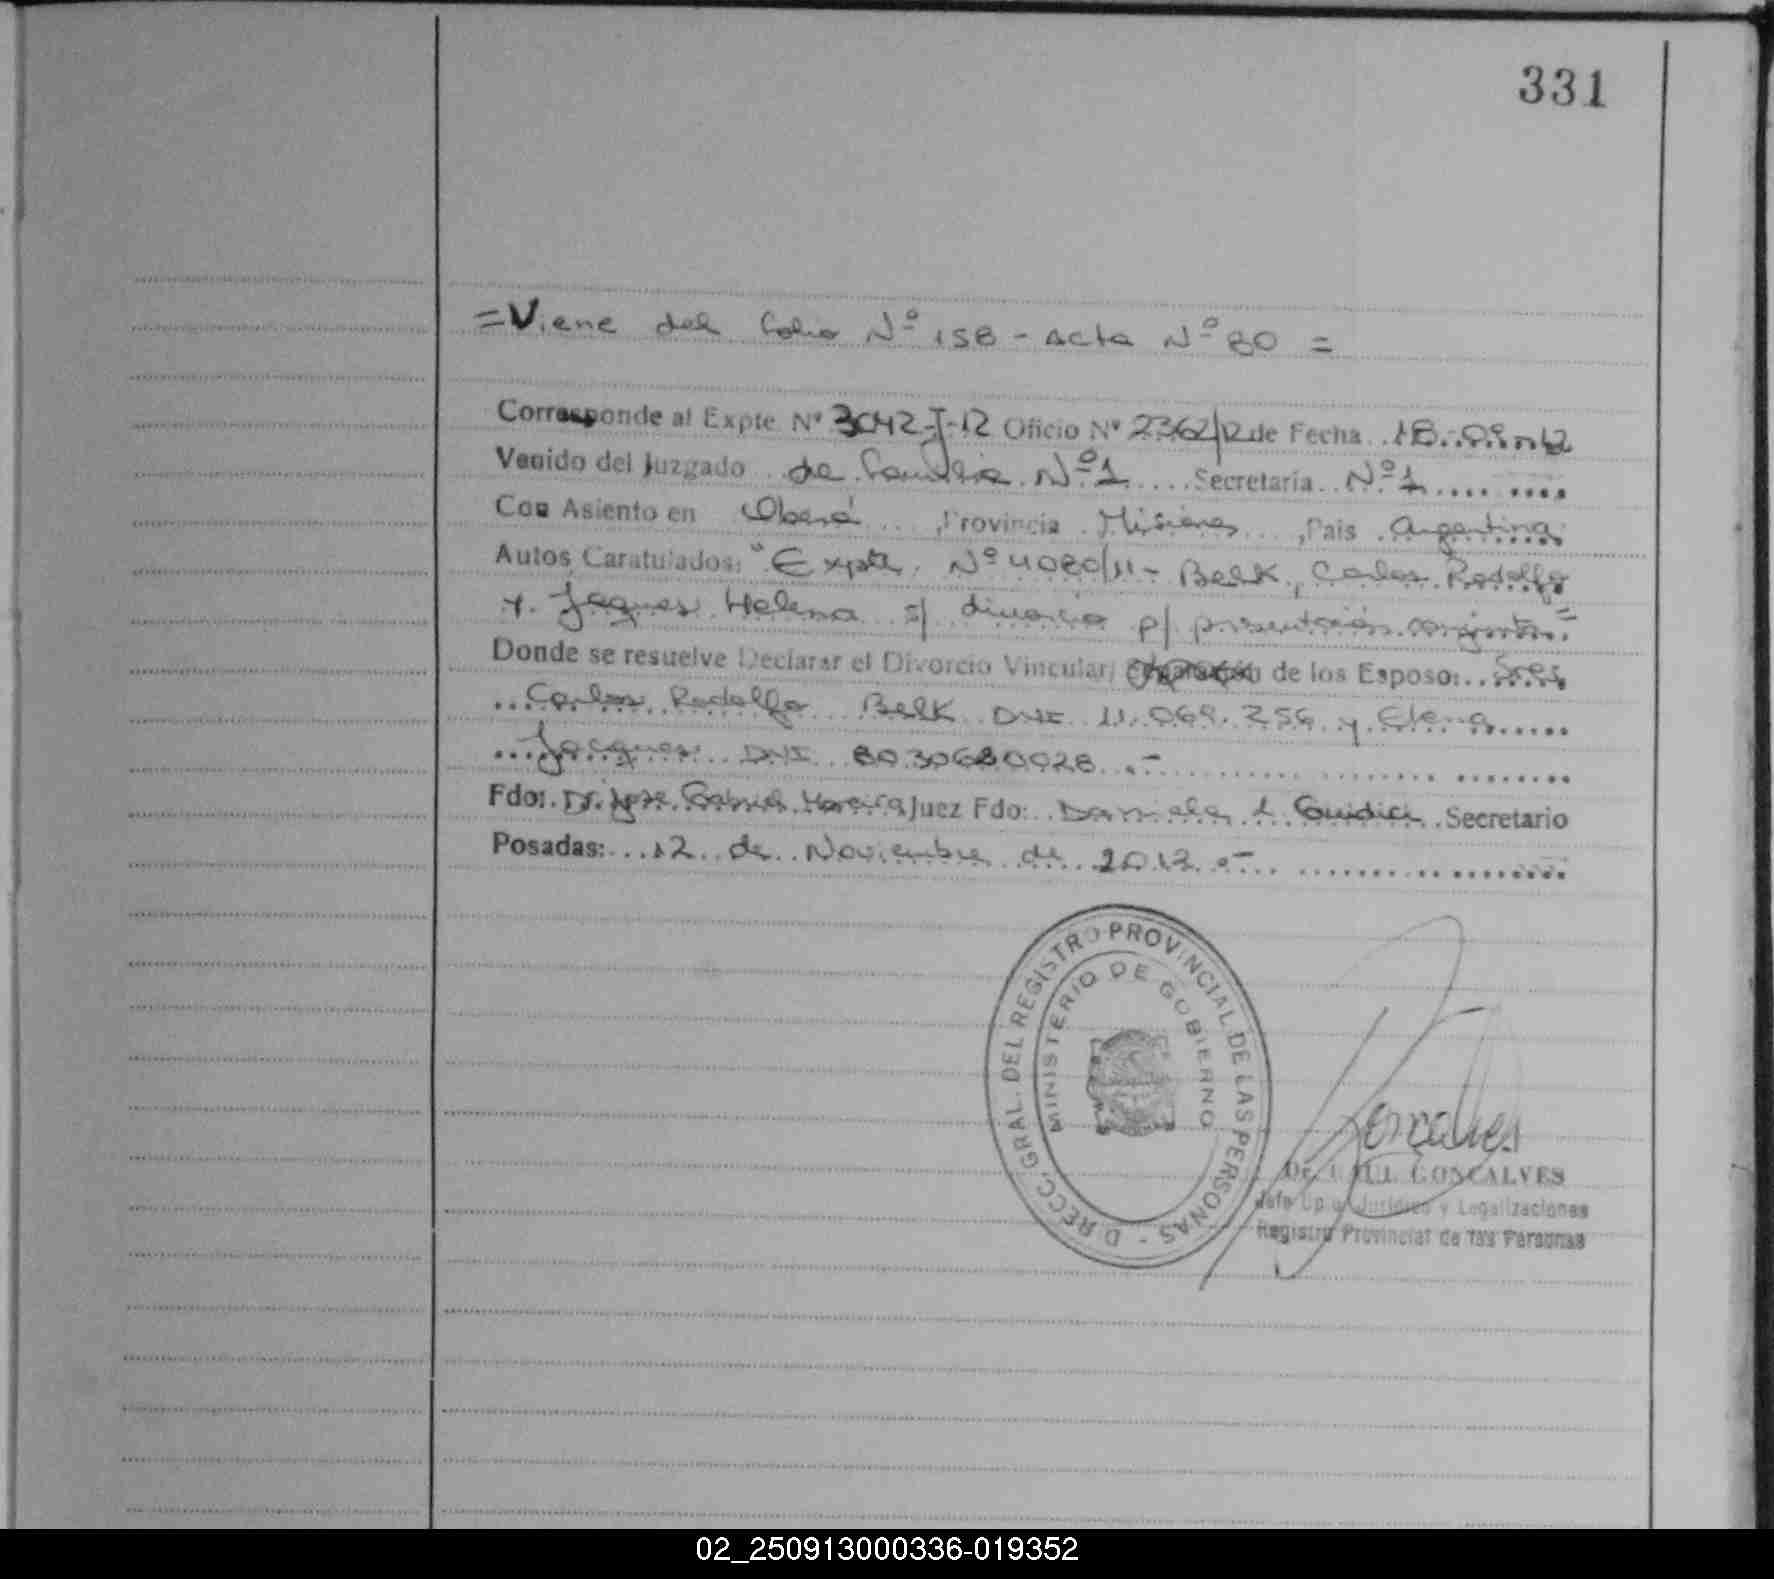 331
=Viene del Folio Nº 158 - Acta Nº 80 =
Corresponde al Expte Nº 3042-J-12 Oficio Nº 2362/12 de Fecha 18.09.12
Venido del Juzgado de Familia Nº 1 Secretaría Nº 1
Con Asiento en Oberá, Provincia Misiones, País Argentina
Autos Caratulados: "Expte. Nº 4080/11 - Belk, Carlos Rodolfo
y Jaques Helena s/ divorcio p/ presentación conjunta."
Donde se resuelve Declarar el Divorcio Vincular/ de los Esposo: Sres.
Carlos Rodolfo Belk DNI 11.069.256 y Elena
Jacques DNI 8030680028.-
Fdo: Dr. Jose Gabriel Moreira Juez Fdo: Daniela A. Guidici Secretario
Posadas: 12 de Noviembre de 2012.-
DIRECC. GRAL. DEL REGISTRO PROVINCIAL DE LAS PERSONAS -
MINISTERIO DE GOBIERNO
Goncalves
Dr. GONCALVES
Jefe Jurídico y Legalizaciones
Registro Provincial de las Personas
02_250913000336-019352